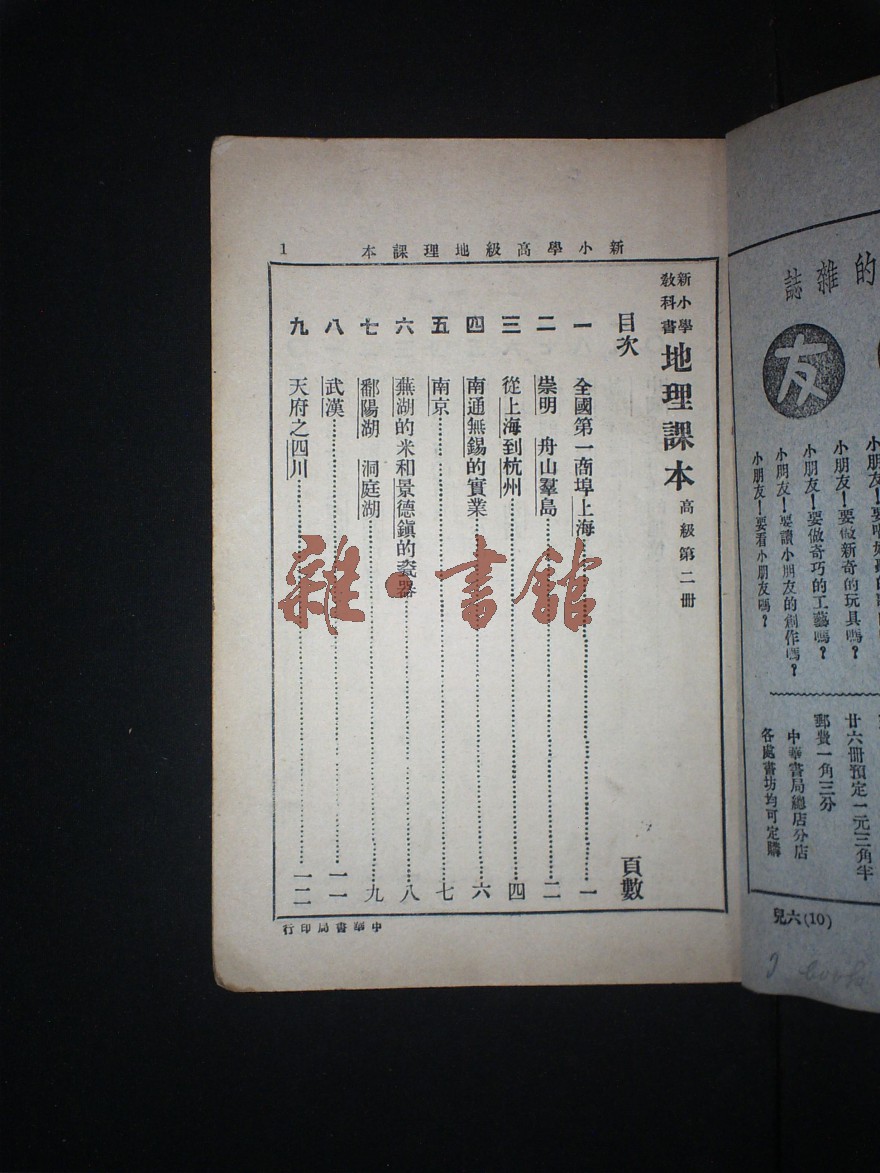 新小學高級地理課本
1
新小學
教科書
地理課本 高級第二冊
目次 頁數
一 全國第一商埠上海 一
二 崇明 舟山羣島 二
三 從上海到杭州 四
四 南通無錫的實業 六
五 南京 七
六 蕪湖的米和景德鎮的瓷器 八
七 鄱陽湖 洞庭湖 九
八 武漢 一一
九 天府之四川 一二
中華書局印行
雜·書館
的雜誌
友
小朋友!要做新奇的玩具嗎?
小朋友!要做奇巧的工藝嗎?
小朋友!要讀小朋友的創作嗎?
小朋友!要看小朋友嗎?
廿六冊預定一元三角半
郵費一角三分
中華書局總店分店
各處書坊均可定購
兒六(10)